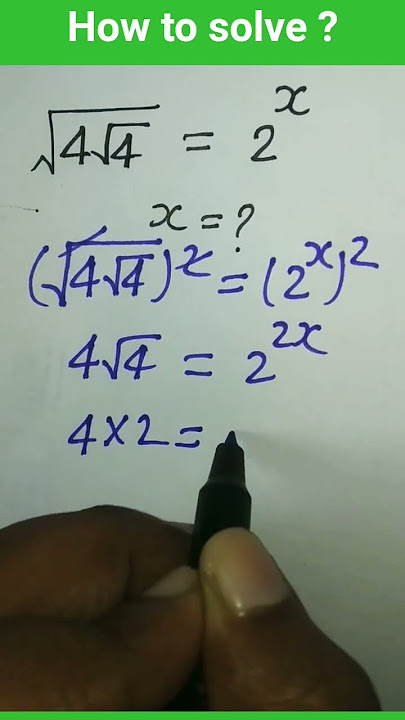 How to solve ?
√(4√4) = 2^x
x = ?
(√(4√4))^2 = (2^x)^2
4√4 = 2^2x
4×2=